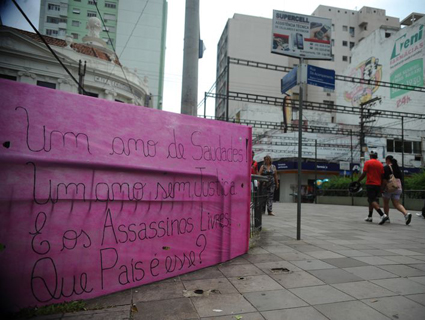 SUPERCELL
Leni
Um ano de Saudades!
Um ano sem Justiça
E os Assassinos Livres.
Que País é esse?